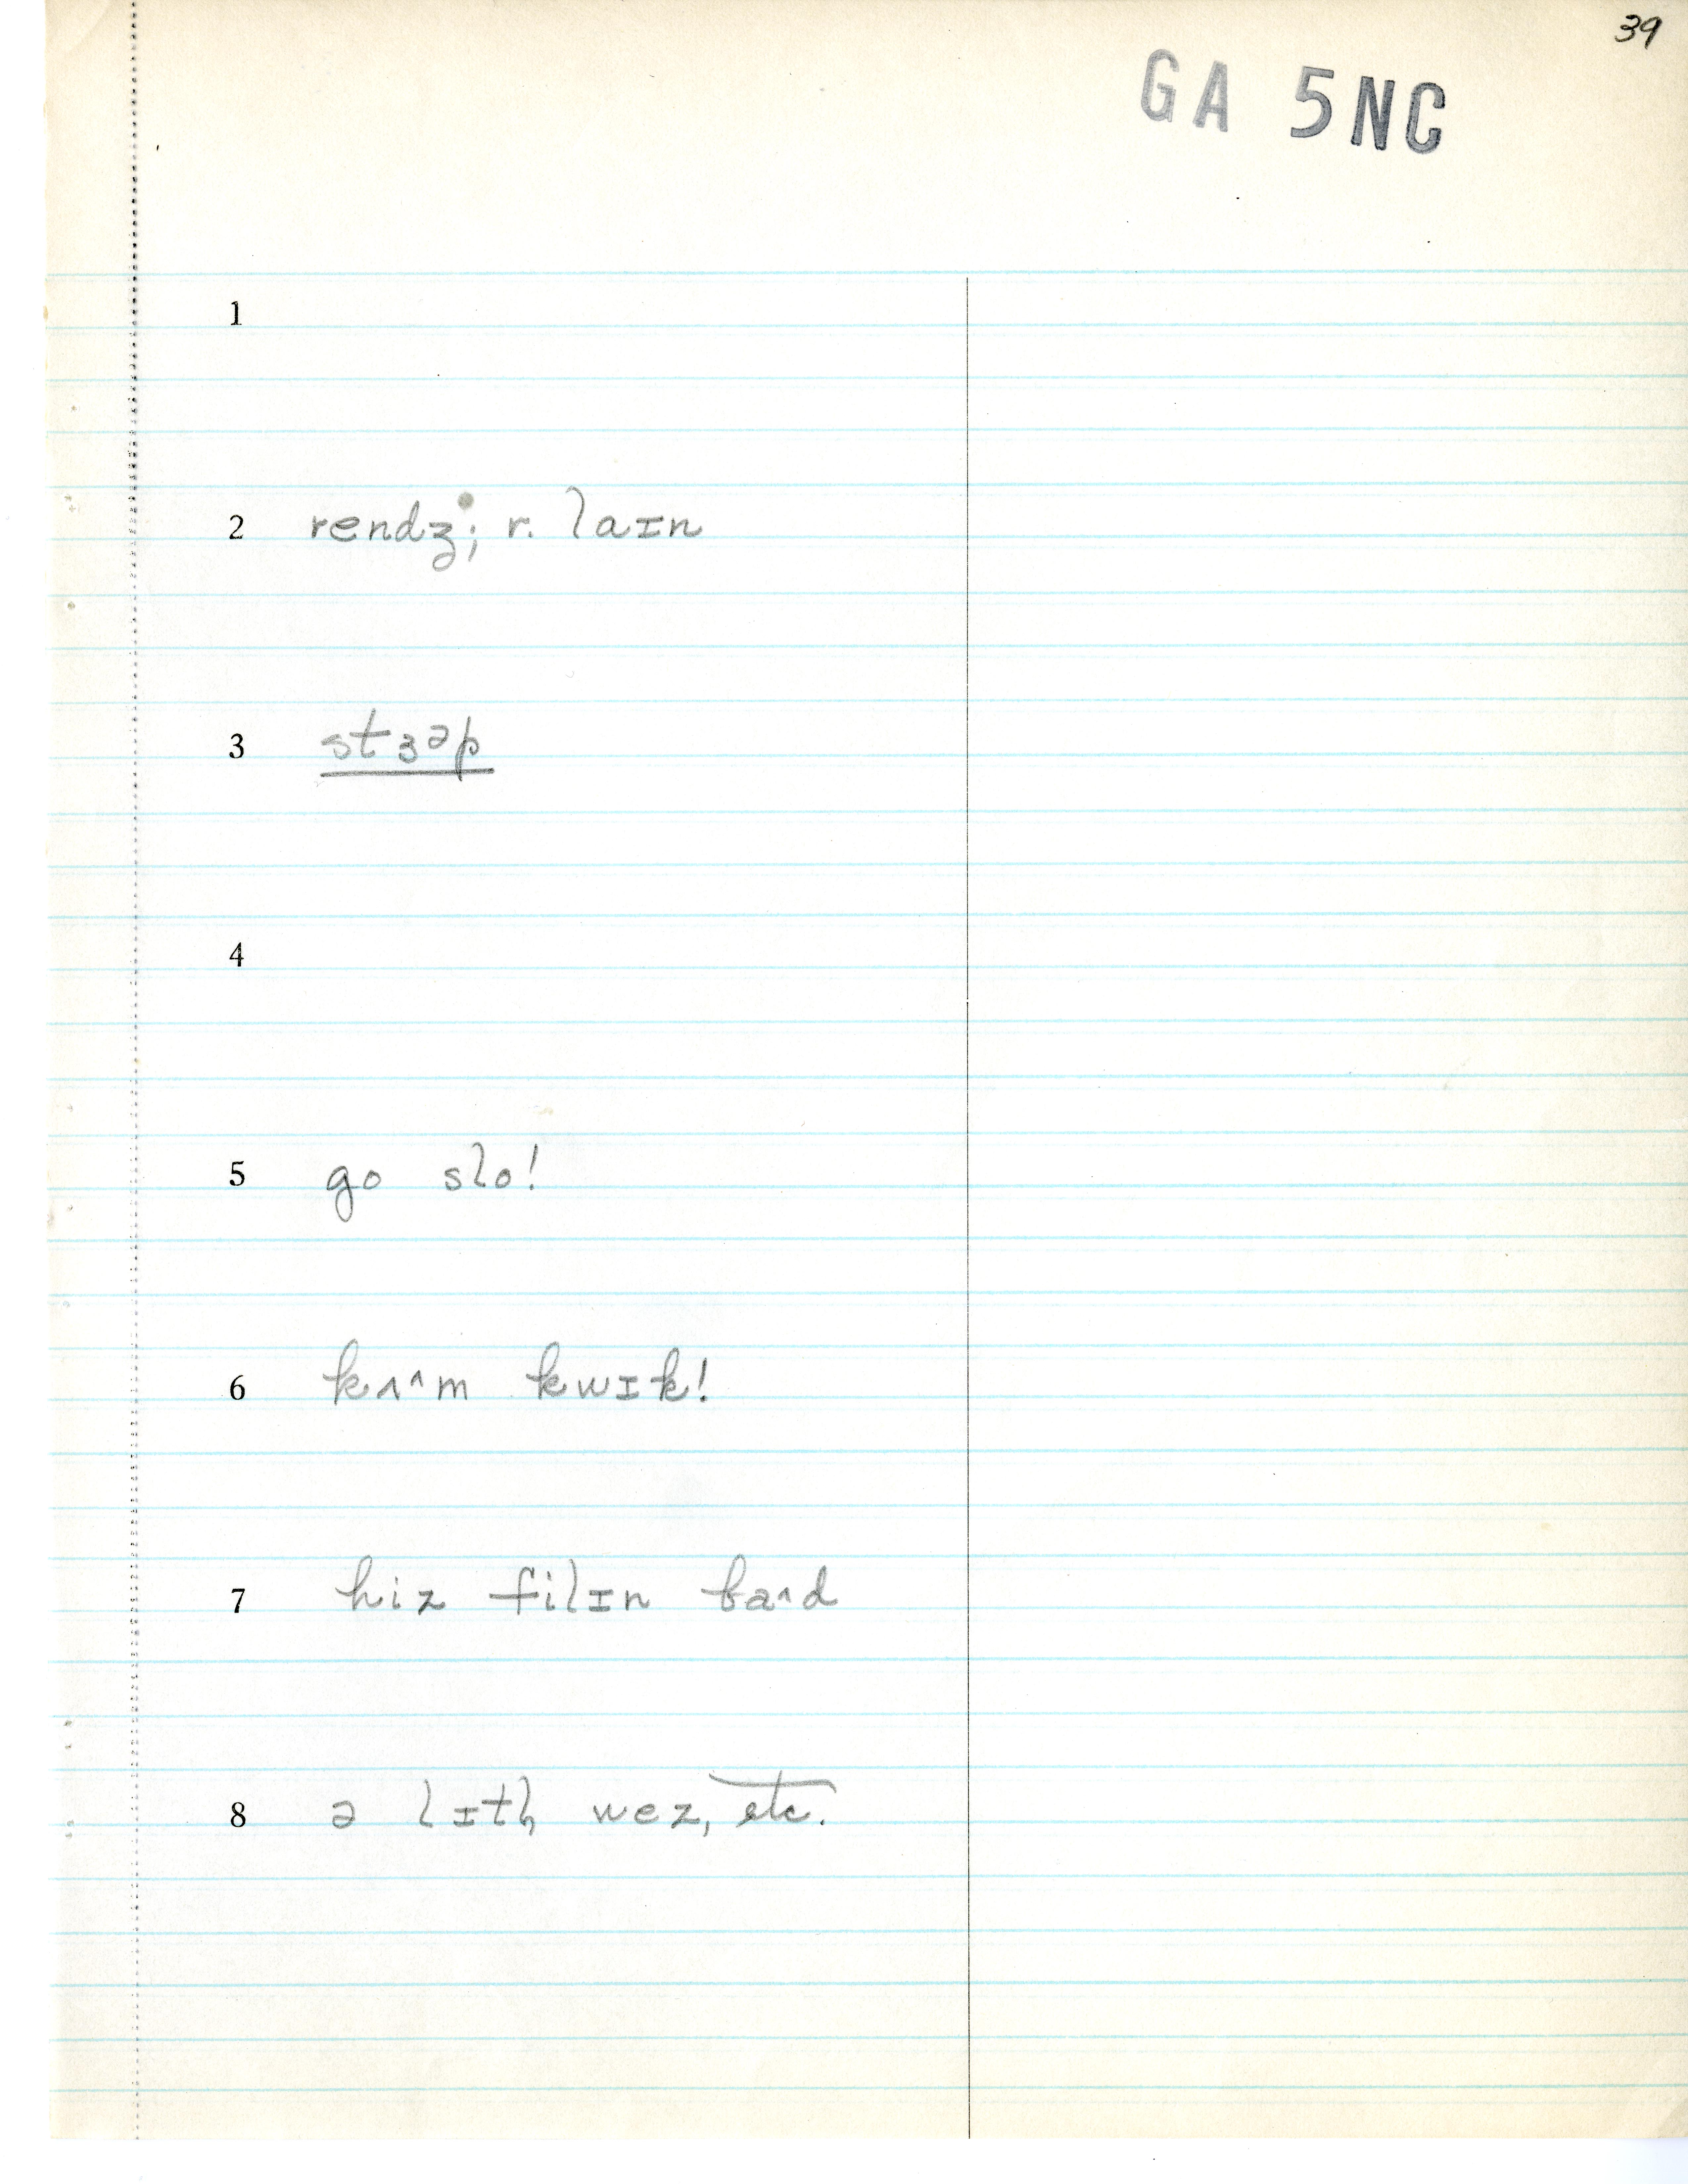 39
GA 5NC
1
2 rendʒ; r. laɪn
3 stɜᵊp
4
5 go slo!
6 kʌ^m kwɪk!
7 hiz filɪn ba^d
8 ə lɪtl̩ wez, etc.